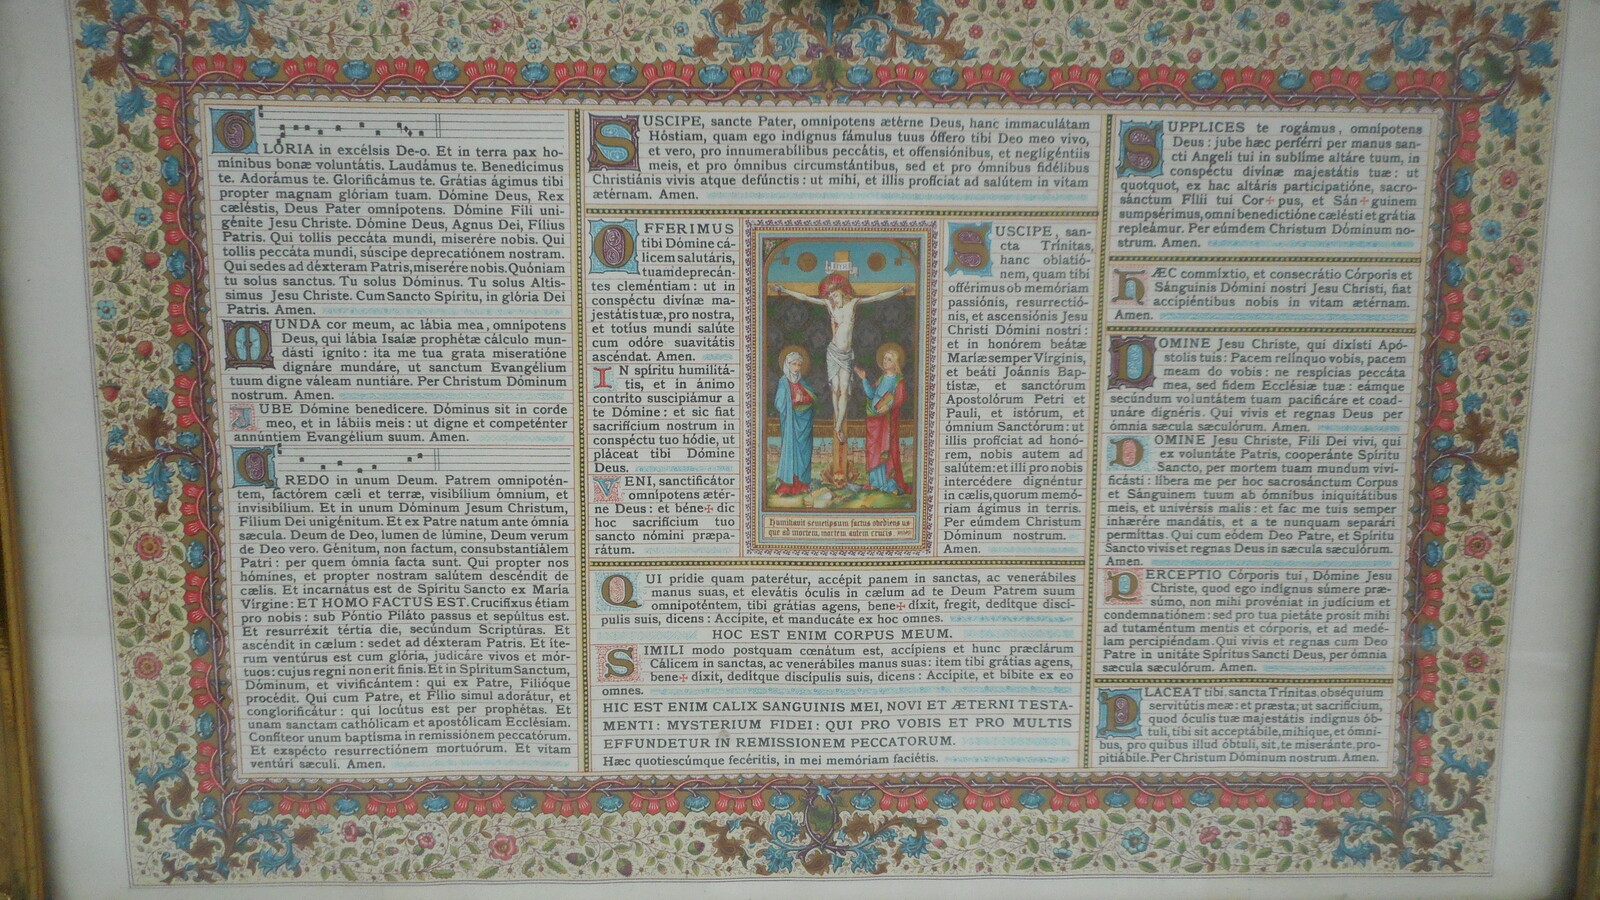 GLORIA in excélsis De-o. Et in terra pax ho-
mínibus bonæ voluntátis. Laudámus te. Benedícimus
te. Adorámus te. Glorificámus te. Grátias ágimus tibi
propter magnam glóriam tuam. Dómine Deus, Rex
cæléstis, Deus Pater omnípotens. Dómine Fili uni-
génite Jesu Christe. Dómine Deus, Agnus Dei, Fílius
Patris. Qui tollis peccáta mundi, miserére nobis. Qui
tollis peccáta mundi, súscipe deprecatiónem nostram.
Qui sedes ad déxteram Patris, miserére nobis. Quóniam
tu solus sanctus. Tu solus Dóminus. Tu solus Altís-
simus Jesu Christe. Cum Sancto Spíritu, in glória Dei
Patris. Amen.
MUNDA cor meum, ac lábia mea, omnípotens
Deus, qui lábia Isaíæ prophétæ cálculo mun-
dásti igníto : ita me tua grata miseratióne
dignáre mundáre, ut sanctum Evangélium
tuum digne váleam nuntiáre. Per Christum Dóminum
nostrum. Amen.
JUBE Dómine benedícere. Dóminus sit in corde
meo, et in lábiis meis : ut digne et competénter
annúntiem Evangélium suum. Amen.
CREDO in unum Deum. Patrem omnipotén-
tem, factórem cæli et terræ, visibílium ómnium, et
invisibílium. Et in unum Dóminum Jesum Christum,
Fílium Dei unigénitum. Et ex Patre natum ante ómnia
sæcula. Deum de Deo, lumen de lúmine, Deum verum
de Deo vero. Génitum, non factum, consubstantiálem
Patri : per quem ómnia facta sunt. Qui propter nos
hómines, et propter nostram salútem descéndit de
cælis. Et incarnátus est de Spíritu Sancto ex María
Vírgine : ET HOMO FACTUS EST. Crucifíxus étiam
pro nobis : sub Póntio Piláto passus et sepúltus est.
Et resurréxit tértia die, secúndum Scriptúras. Et
ascéndit in cælum : sedet ad déxteram Patris. Et íte-
rum ventúrus est cum glória, judicáre vivos et mór-
tuos : cujus regni non erit finis. Et in Spíritum Sanctum,
Dóminum, et vivificántem : qui ex Patre, Filióque
procédit. Qui cum Patre, et Fílio simul adorátur, et
conglorificátur : qui locútus est per prophétas. Et
unam sanctam cathólicam et apostólicam Ecclésiam.
Confíteor unum baptísma in remissiónem peccatórum.
Et exspécto resurrectiónem mortuórum. Et vitam
ventúri sæculi. Amen.
SUSCIPE, sancte Pater, omnípotens ætérne Deus, hanc immaculátam
Hóstiam, quam ego indígnus fámulus tuus óffero tibi Deo meo vivo,
et vero, pro innumerabílibus peccátis, et offensiónibus, et negligéntiis
meis, et pro ómnibus circumstántibus, sed et pro ómnibus fidélibus
Christiánis vivis atque defúnctis : ut mihi, et illis profíciat ad salútem in vitam
ætérnam. Amen.
OFFERIMUS
tibi Dómine cá-
licem salutáris,
tuam deprecán-
tes cleméntiam : ut in
conspéctu divínæ ma-
jestátis tuæ, pro nostra,
et totíus mundi salúte
cum odóre suavitátis
ascéndat. Amen.
IN spíritu humilitá-
tis, et in ánimo
contríto suscipiámur a
te Dómine : et sic fiat
sacrifícium nostrum in
conspéctu tuo hódie, ut
pláceat tibi Dómine
Deus.
VENI, sanctificátor
omnípotens ætér-
ne Deus : et béne✠ dic
hoc sacrifícium tuo
sancto nómini præpa-
rátum.
INRI
Humiliavit semetipsum factus obediens us
que ad mortem, mortem autem crucis
SUSCIPE, san-
cta Trínitas,
hanc oblatió-
nem, quam tibi
offérimus ob memóriam
passiónis, resurrectió-
nis, et ascensiónis Jesu
Christi Dómini nostri :
et in honórem beátæ
Maríæ semper Vírginis,
et beáti Joánnis Bap-
tístæ, et sanctórum
Apostolórum Petri et
Pauli, et istórum, et
ómnium Sanctórum : ut
illis profíciat ad honó-
rem, nobis autem ad
salútem : et illi pro nobis
intercédere dignéntur
in cælis, quorum memó-
riam ágimus in terris.
Per eúmdem Christum
Dóminum nostrum.
Amen.
QUI prídie quam paterétur, accépit panem in sanctas, ac venerábiles
manus suas, et elevátis óculis in cælum ad te Deum Patrem suum
omnipoténtem, tibi grátias agens, bene✠ díxit, fregit, dedítque discí-
pulis suis, dicens : Accípite, et manducáte ex hoc omnes.
HOC EST ENIM CORPUS MEUM.
SIMILI modo postquam cœnátum est, accípiens et hunc præclárum
Cálicem in sanctas, ac venerábiles manus suas : item tibi grátias agens,
bene✠ dixit, dedítque discípulis suis, dicens : Accípite, et bíbite ex eo
omnes.
HIC EST ENIM CALIX SANGUINIS MEI, NOVI ET ÆTERNI TESTA-
MENTI : MYSTERIUM FIDEI : QUI PRO VOBIS ET PRO MULTIS
EFFUNDETUR IN REMISSIONEM PECCATORUM.
Hæc quotiescúmque fecéritis, in mei memóriam faciétis.
SUPPLICES te rogámus, omnípotens
Deus : jube hæc perférri per manus san-
cti Angeli tui in sublíme altáre tuum, in
conspéctu divínæ majestátis tuæ : ut
quotquot, ex hac altáris participatióne, sacro-
sánctum Fílii tui Cor✠ pus, et Sán✠ guinem
sumpsérimus, omni benedictióne cælésti et grátia
repleámur. Per eúmdem Christum Dóminum no-
strum. Amen.
HÆC commíxtio, et consecrátio Córporis et
Sánguinis Dómini nostri Jesu Christi, fiat
accipiéntibus nobis in vitam ætérnam.
Amen.
DOMINE Jesu Christe, qui dixísti Apó-
stolis tuis : Pacem relínquo vobis, pacem
meam do vobis : ne respícias peccáta
mea, sed fidem Ecclésiæ tuæ : eámque
secúndum voluntátem tuam pacificáre et coad-
unáre dignéris. Qui vivis et regnas Deus per
ómnia sæcula sæculórum. Amen.
DOMINE Jesu Christe, Fili Dei vivi, qui
ex voluntáte Patris, cooperánte Spíritu
Sancto, per mortem tuam mundum vivi-
ficásti : líbera me per hoc sacrosánctum Corpus
et Sánguinem tuum ab ómnibus iniquitátibus
meis, et univérsis malis : et fac me tuis semper
inhærére mandátis, et a te nunquam separári
permíttas. Qui cum eódem Deo Patre, et Spíritu
Sancto vivis et regnas Deus in sæcula sæculórum.
Amen.
PERCEPTIO Córporis tui, Dómine Jesu
Christe, quod ego indígnus súmere præ-
súmo, non mihi provéniat in judícium et
condemnatiónem : sed pro tua pietáte prosit mihi
ad tutaméntum mentis et córporis, et ad medé-
lam percipiéndam. Qui vivis et regnas cum Deo
Patre in unitáte Spíritus Sancti Deus, per ómnia
sæcula sæculórum. Amen.
PLACEAT tibi, sancta Trínitas, obséquium
servitútis meæ : et præsta; ut sacrifícium,
quod óculis tuæ majestátis indígnus ób-
tuli, tibi sit acceptábile, mihíque, et ómni-
bus, pro quibus illud óbtuli, sit, te miseránte, pro-
pitiábile. Per Christum Dóminum nostrum. Amen.